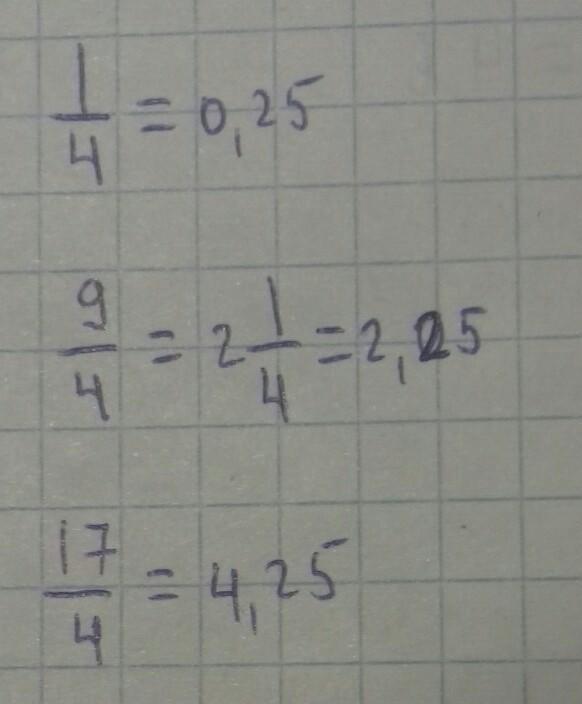 1/4 = 0,25
9/4 = 2 1/4 = 2,25
17/4 = 4,25